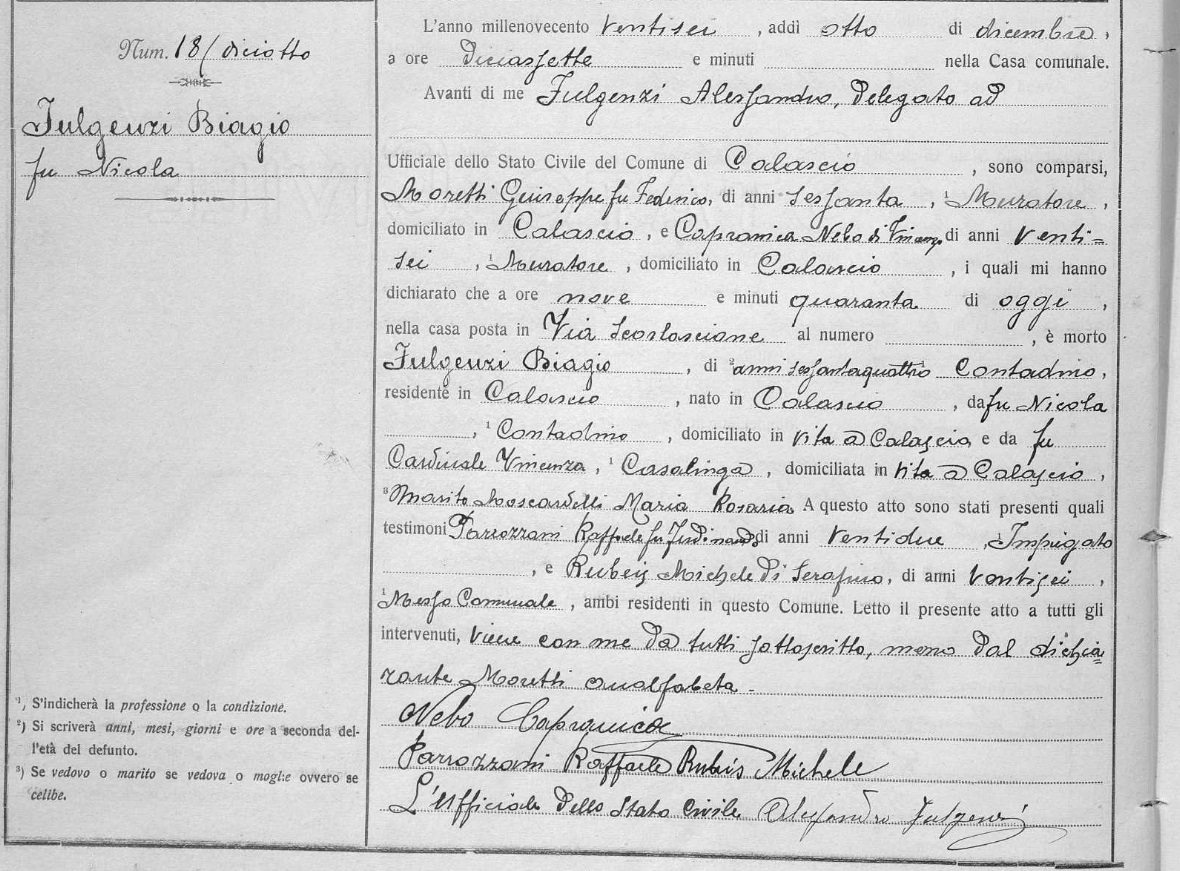 Num. 18/ diciotto
Fulgenzi Biagio
fu Nicola
¹) S'indicherà la professione o la condizione.
²) Si scriverà anni, mesi, giorni e ore a seconda del-
l'età del defunto.
³) Se vedovo o marito se vedova o moglie ovvero se
celibe.
L'anno millenovecento ventisei, addì otto di dicembre,
a ore diciassette e minuti nella Casa comunale.
Avanti di me Fulgenzi Alessandro, Delegato ad
Ufficiale dello Stato Civile del Comune di Calascio, sono comparsi,
Moretti Giuseppe fu Federico, di anni sessanta, ¹ Muratore,
domiciliato in Calascio, e Capranica Nebo di Vincenzo di anni venti=
sei, ¹ Muratore, domiciliato in Calascio, i quali mi hanno
dichiarato che a ore nove e minuti quaranta di oggi,
nella casa posta in Via al numero , è morto
Fulgenzi Biagio, di ² anni sessantaquattro Contadino,
residente in Calascio, nato in Calascio, da fu Nicola
, ¹ Contadino, domiciliato in vita a Calascio e da fu
Cardinale Vincenza, ¹ Casalinga, domiciliata in vita a Calascio,
³ Marito Moscardelli Maria Rosaria A questo atto sono stati presenti quali
testimoni Parrozzani Raffaele fu Ferdinando di anni ventidue, ¹ Impigato
, e Rubeis Michele di Serafino, di anni ventisei,
¹ Messo Comunale, ambi residenti in questo Comune. Letto il presente atto a tutti gli
intervenuti, viene con me da tutti sottoscritto, meno dal dichia=
rante Moretti analfabeta.
Nebo Capranica
Parrozzani Raffaele Rubeis Michele
L'Ufficiale dello Stato Civile Alessandro Fulgenzi